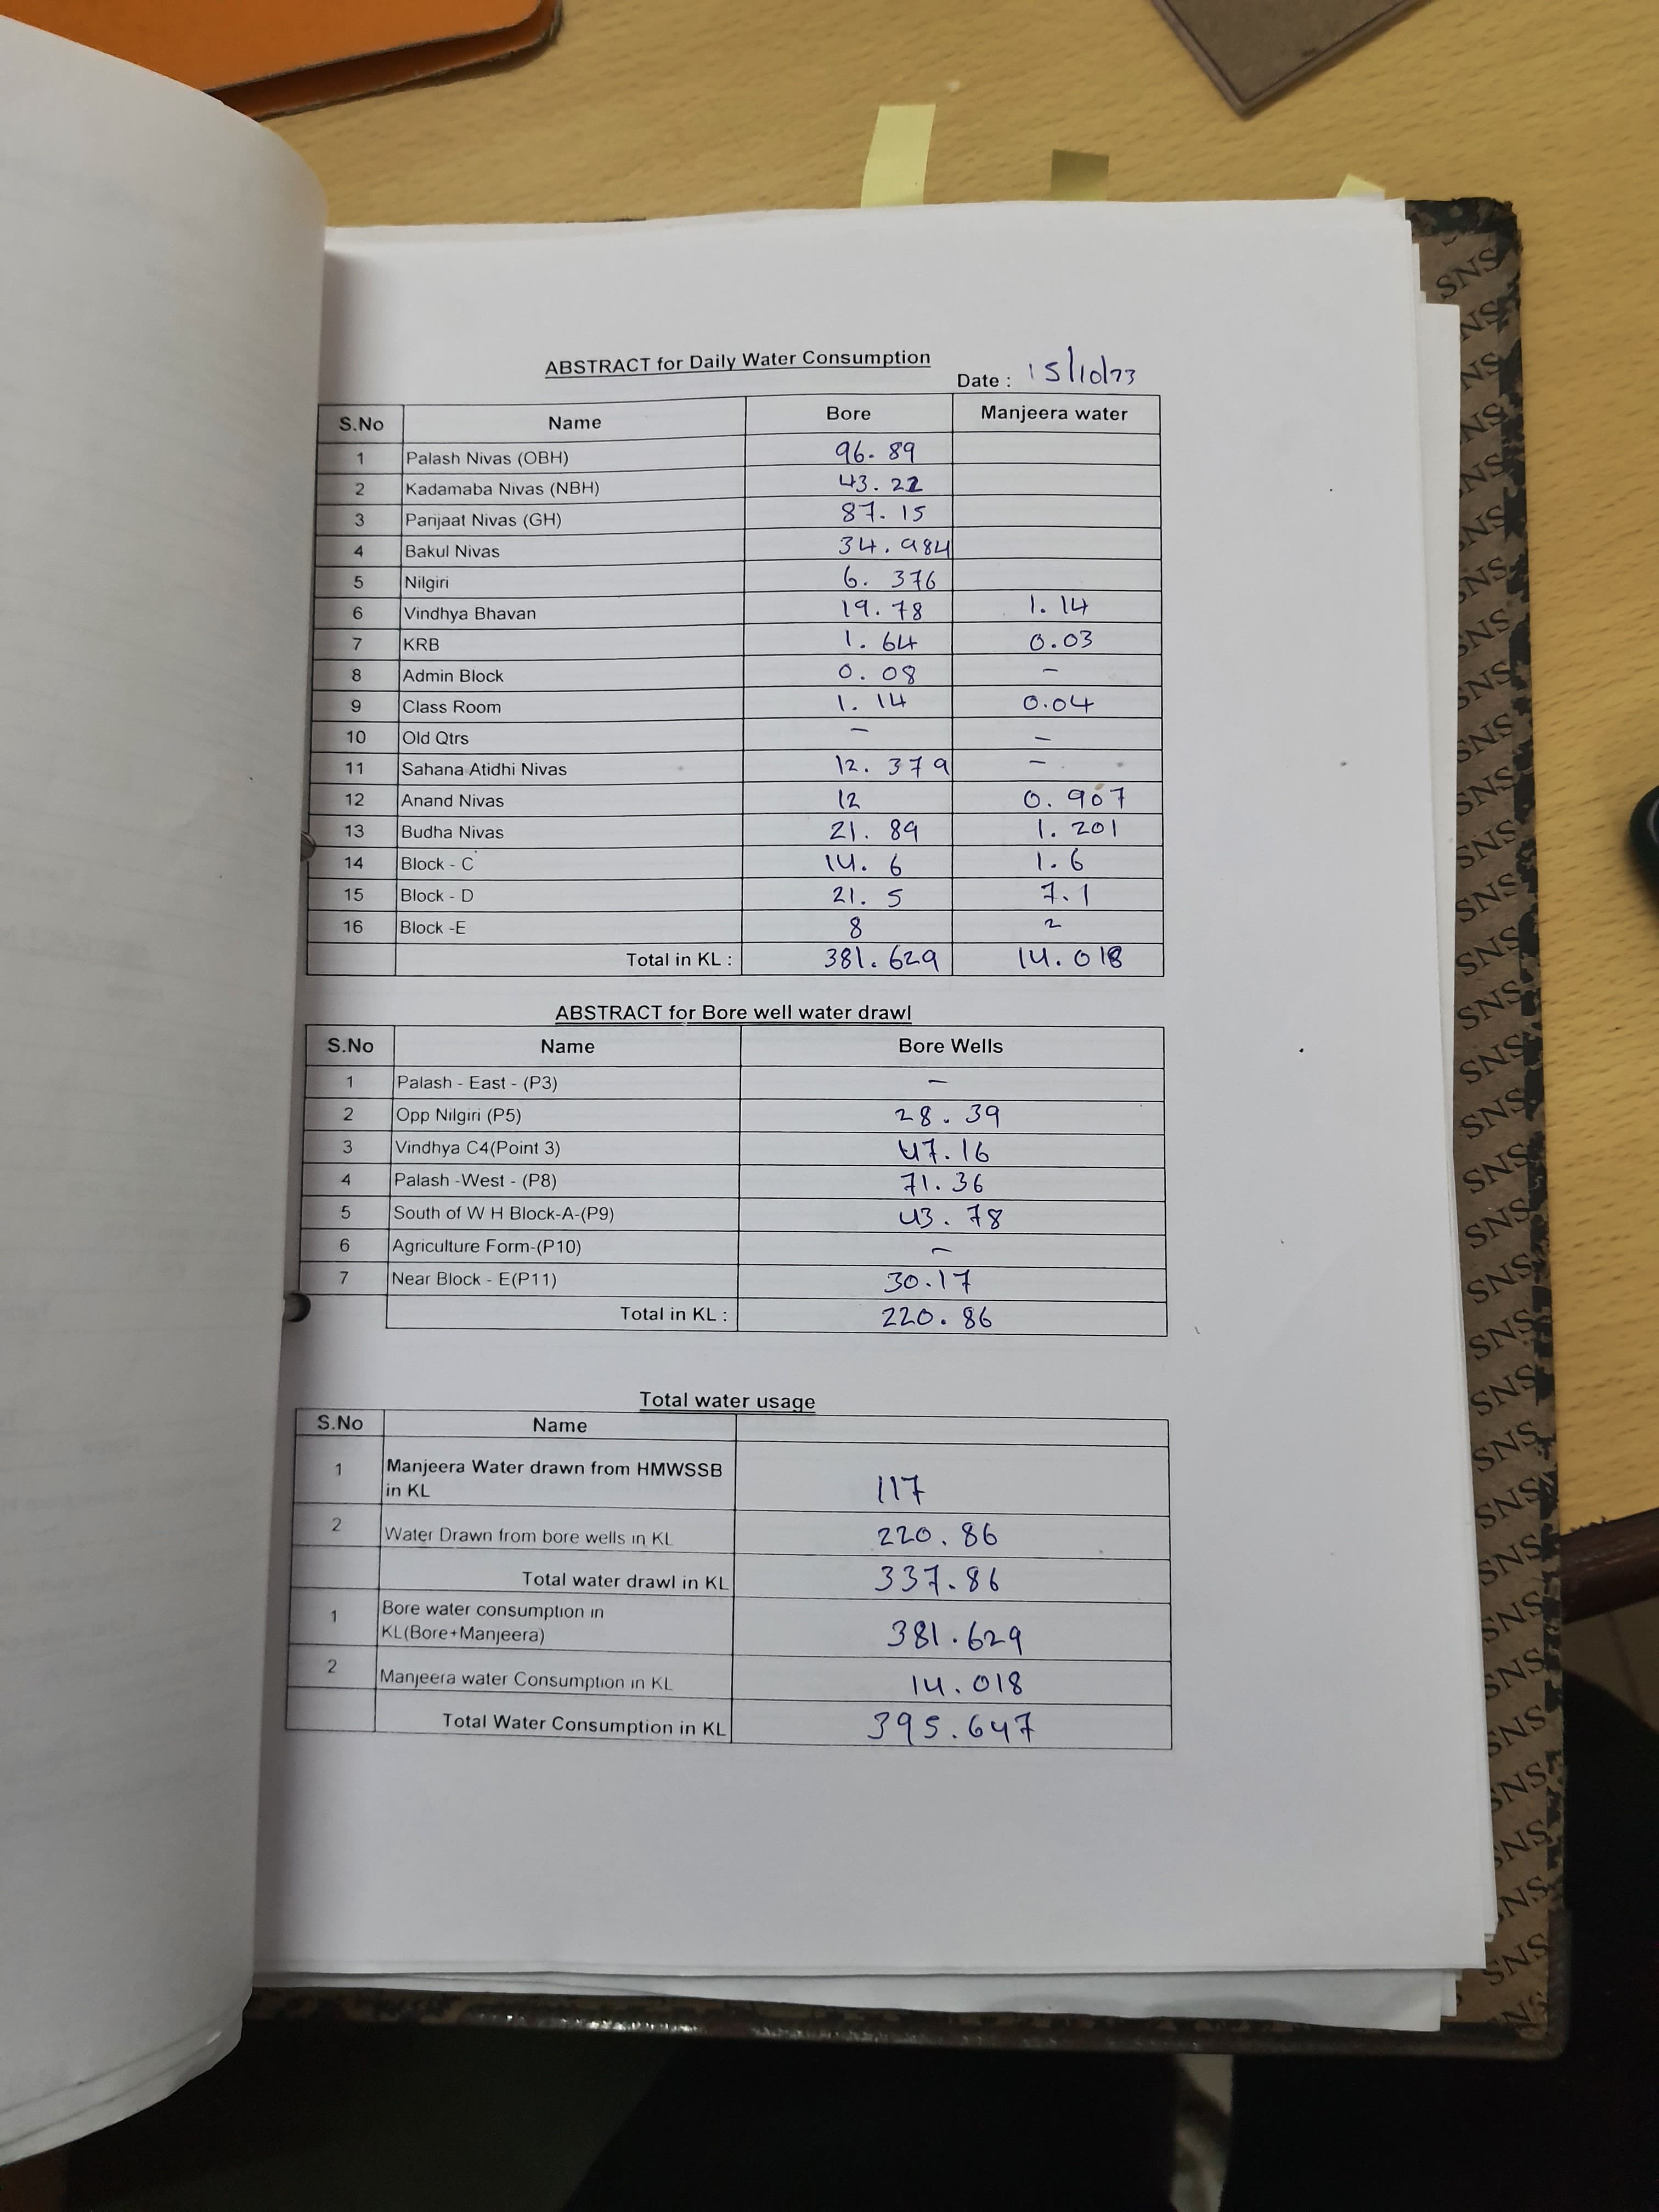 ABSTRACT for Daily Water Consumption
Date : 15/10/23
S.No Name Bore Manjeera water
1 Palash Nivas (OBH) 96.89
2 Kadamaba Nivas (NBH) 43.22
3 Parijaat Nivas (GH) 87.15
4 Bakul Nivas 34.984
5 Nilgiri 6.376
6 Vindhya Bhavan 19.78 1.14
7 KRB 1.64 0.03
8 Admin Block 0.08 –
9 Class Room 1.14 0.04
10 Old Qtrs – –
11 Sahana Atidhi Nivas 12.379 –
12 Anand Nivas 12 0.907
13 Budha Nivas 21.89 1.201
14 Block - C 14.6 1.6
15 Block - D 21.5 7.1
16 Block -E 8 2
Total in KL : 381.629 14.018
ABSTRACT for Bore well water drawl
S.No Name Bore Wells
1 Palash - East - (P3) –
2 Opp Nilgiri (P5) 28.39
3 Vindhya C4(Point 3) 47.16
4 Palash -West - (P8) 71.36
5 South of W H Block-A-(P9) 43.78
6 Agriculture Form-(P10) –
7 Near Block - E(P11) 30.17
Total in KL : 220.86
Total water usage
S.No Name
1 Manjeera Water drawn from HMWSSB
in KL 117
2 Water Drawn from bore wells in KL 220.86
Total water drawl in KL 337.86
1 Bore water consumption in
KL(Bore+Manjeera) 381.629
2 Manjeera water Consumption in KL 14.018
Total Water Consumption in KL 395.647
SNS